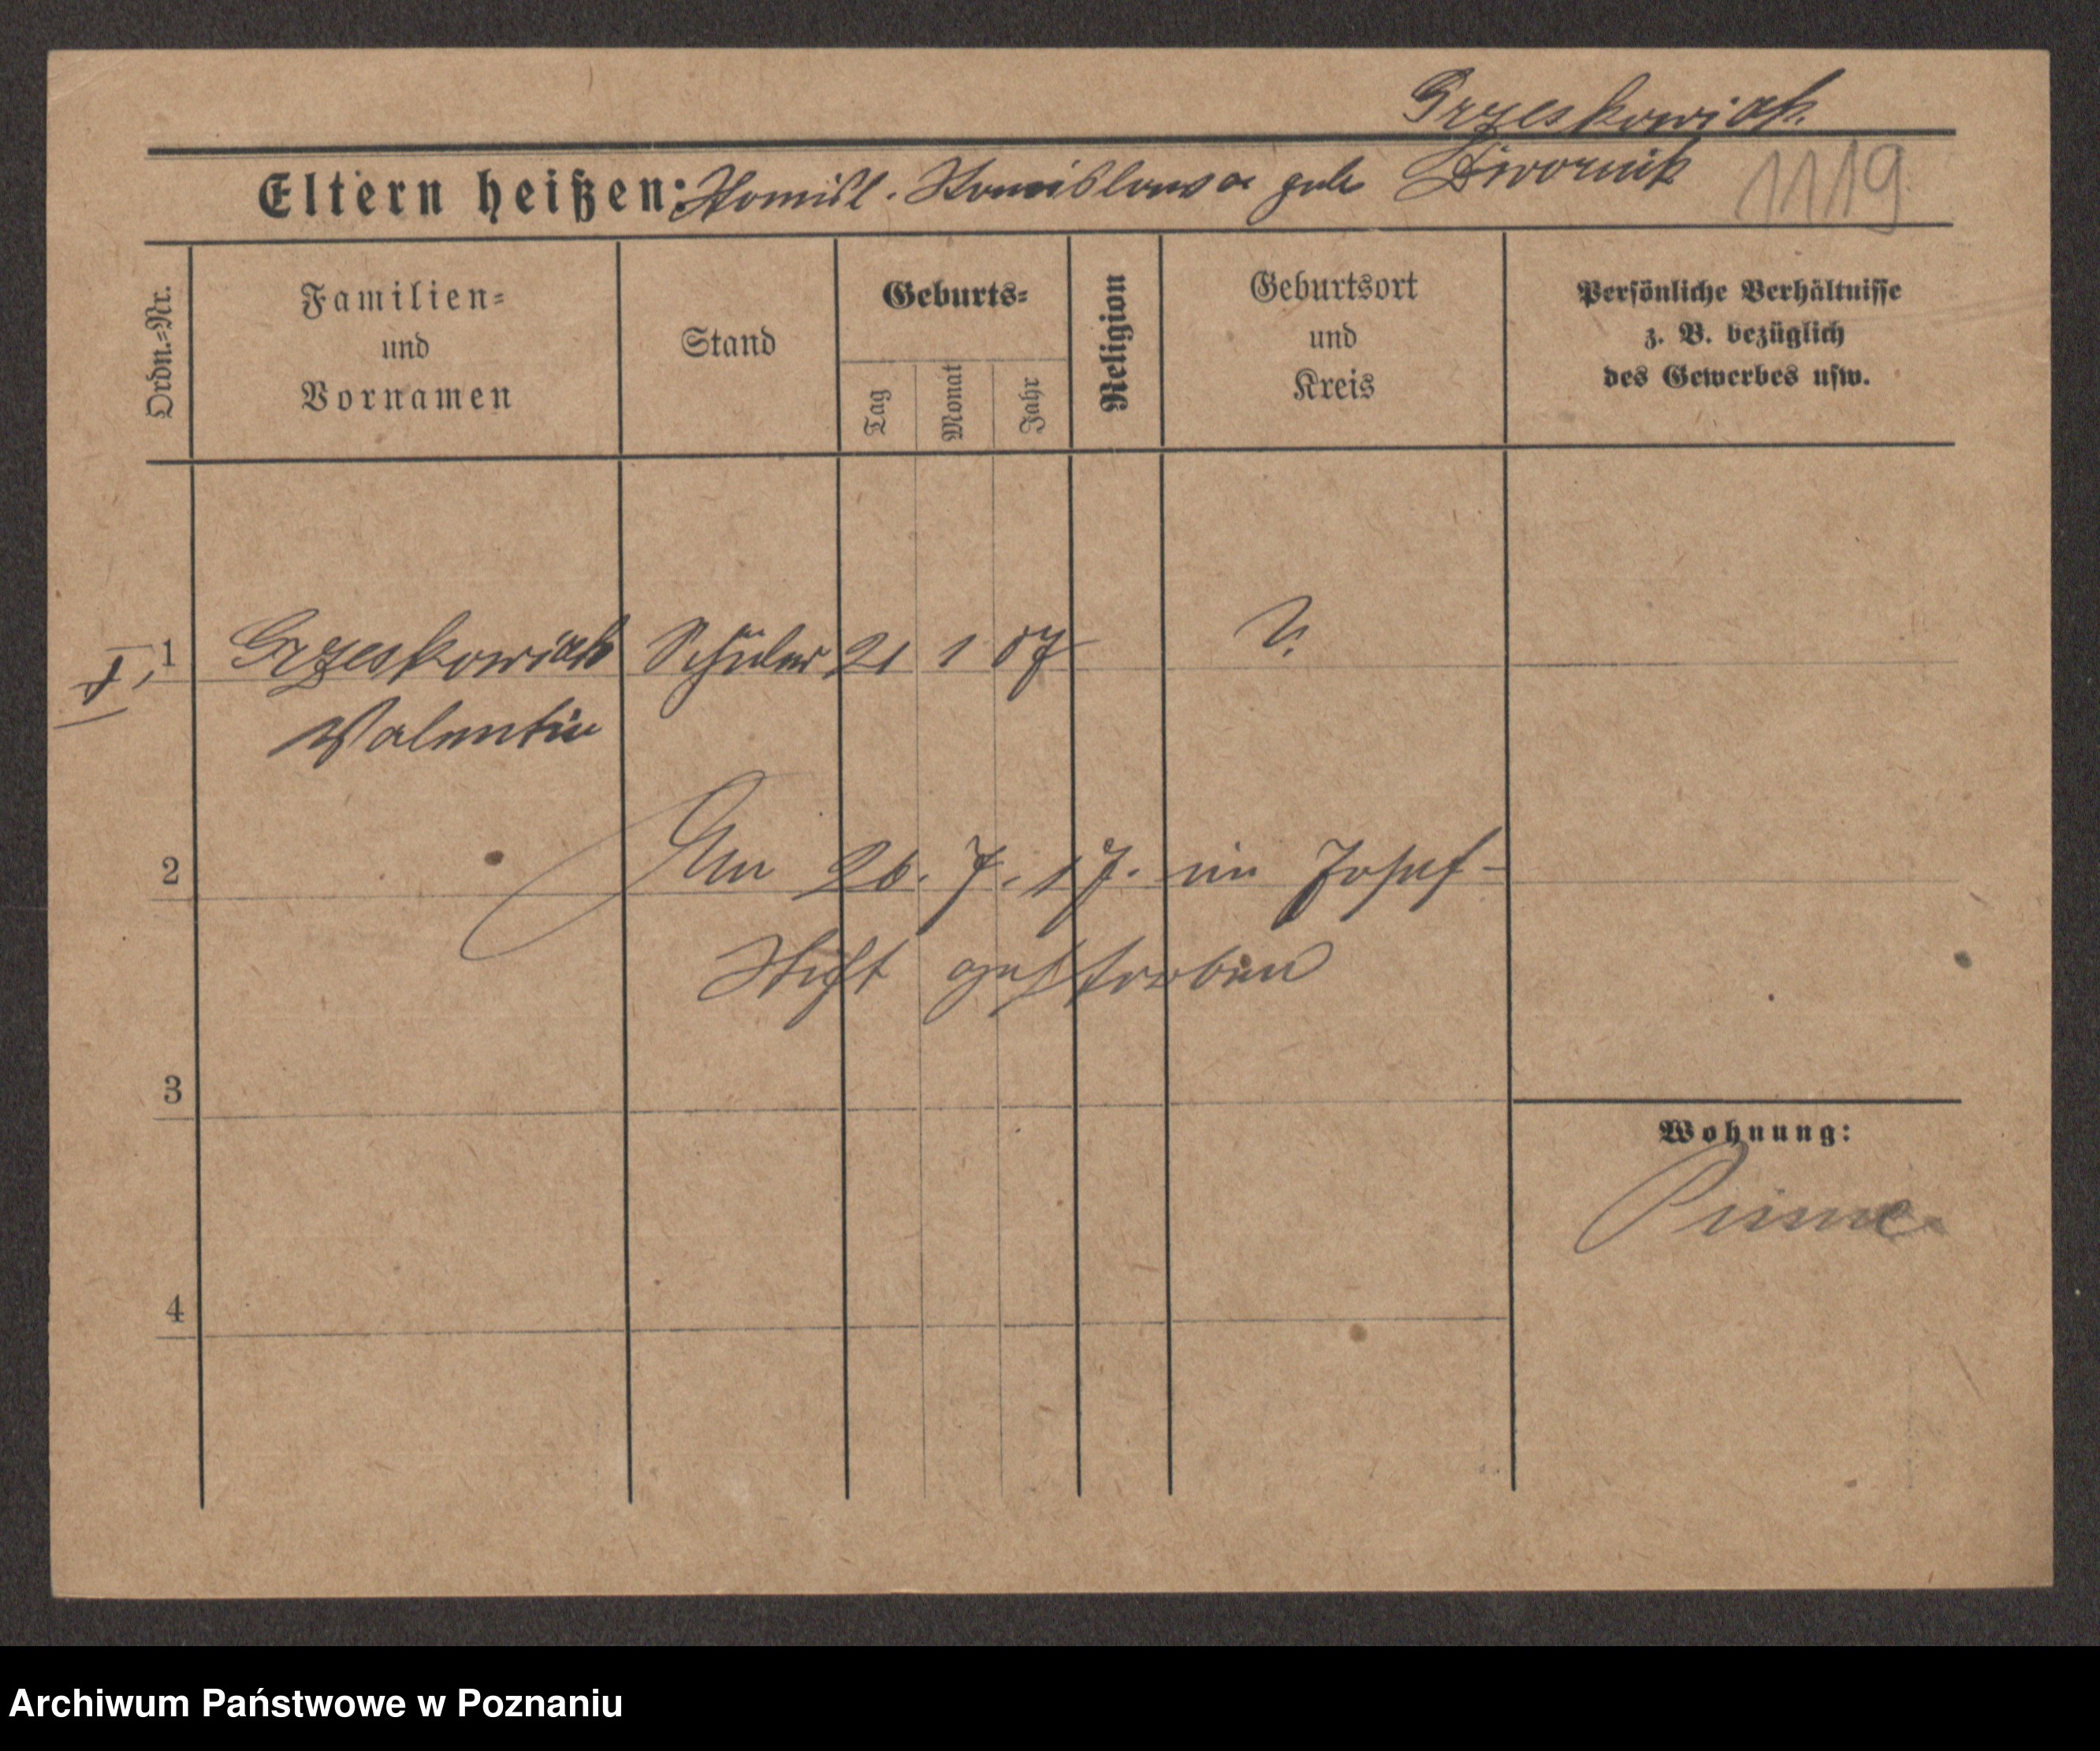 Grzeskowiak.
Eltern heißen: Stanisl. Stanislawa geb. Dwornik 1119
Ordn.=Nr.
Familien=
und
Vornamen
Stand
Geburts=
Tag
Monat
Jahr
Religion
Geburtsort
und
Kreis
Persönliche Verhältnisse
z. B. bezüglich
des Gewerbes usw.
1 Grzeskowiak Schüler 21 1 07 ?
Valentin
2 Am 26. 7. 17. im Josef-
Stift gestorben
3
Wohnung:
Pinne
4
Archiwum Państwowe w Poznaniu